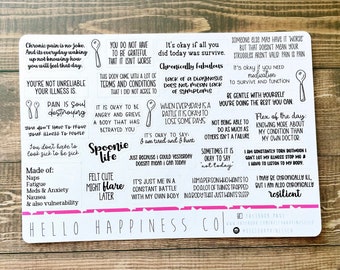 Chronic pain is no joke.
And its everyday waking
up not knowing how
you will feel that day.
YOU DO NOT HAVE
TO BE GRATEFUL
THAT IT ISN'T WORSE
It's okay if all you
did today was survive.
SOMEONE ELSE MAY HAVE IT WORSE
BUT THAT DOESN'T MEAN YOUR
STRUGGLES AREN'T VALID. PAIN IS PAIN
Chronically Fabulous
YOU'RE NOT UNRELIABLE
YOUR ILLNESS IS.
THIS BODY CAME WITH A LOT OF
TERMS AND CONDITIONS
THAT I DO NOT AGREE TO
Lack of a diagnosis
does not mean lack
of symptoms
IT'S OKAY IF YOU NEED
medication
TO SURVIVE AND FUNCTION
PAIN IS
Soul
destroying
IT IS OKAY TO BE
ANGRY AND GRIEVE
A BODY THAT HAS
BETRAYED YOU
WHEN EVERYDAY IS A
BATTLE IT'S OKAY TO
LOSE SOME DAYS
BE GENTLE WITH YOURSELF
YOU'RE DOING THE BEST YOU CAN.
You don't have to prove
your illness to anyone
IT'S OKAY TO SAY:
I am tired and I hurt
NOT BEING ABLE TO
DO AS MUCH AS
OTHERS ISN'T A FAILURE
Flex of the day
KNOWING MORE ABOUT
MY CONDITION THAN
MY OWN DOCTOR.
You don't have to
look sick to be sick
Spoonie
life
JUST BECAUSE I COULD YESTERDAY
DOESN'T MEAN I CAN TODAY
SOMETIMES IT IS
OKAY TO SAY
not today
I AM CONSTANTLY TORN BETWEEN I
CAN'T LET MY ILLNESS STOP ME &
I NEED TO LISTEN TO MY BODY.
Made of:
Naps
Fatigue
Meds & Anxiety
Nausea
& also vulnerability
FELT CUTE
MIGHT flare
LATER
IT'S JUST ME IN A
CONSTANT BATTLE
WITH MY OWN BODY
I AM A PERSON WHO WANTS TO
DO A LOT OF THINGS TRAPPED
IN A BODY THAT JUST WANTS SLEEP
I MAY BE CHRONICALLY ILL,
BUT I AM ALSO CHRONICALLY
resilient
HELLO HAPPINESS CO